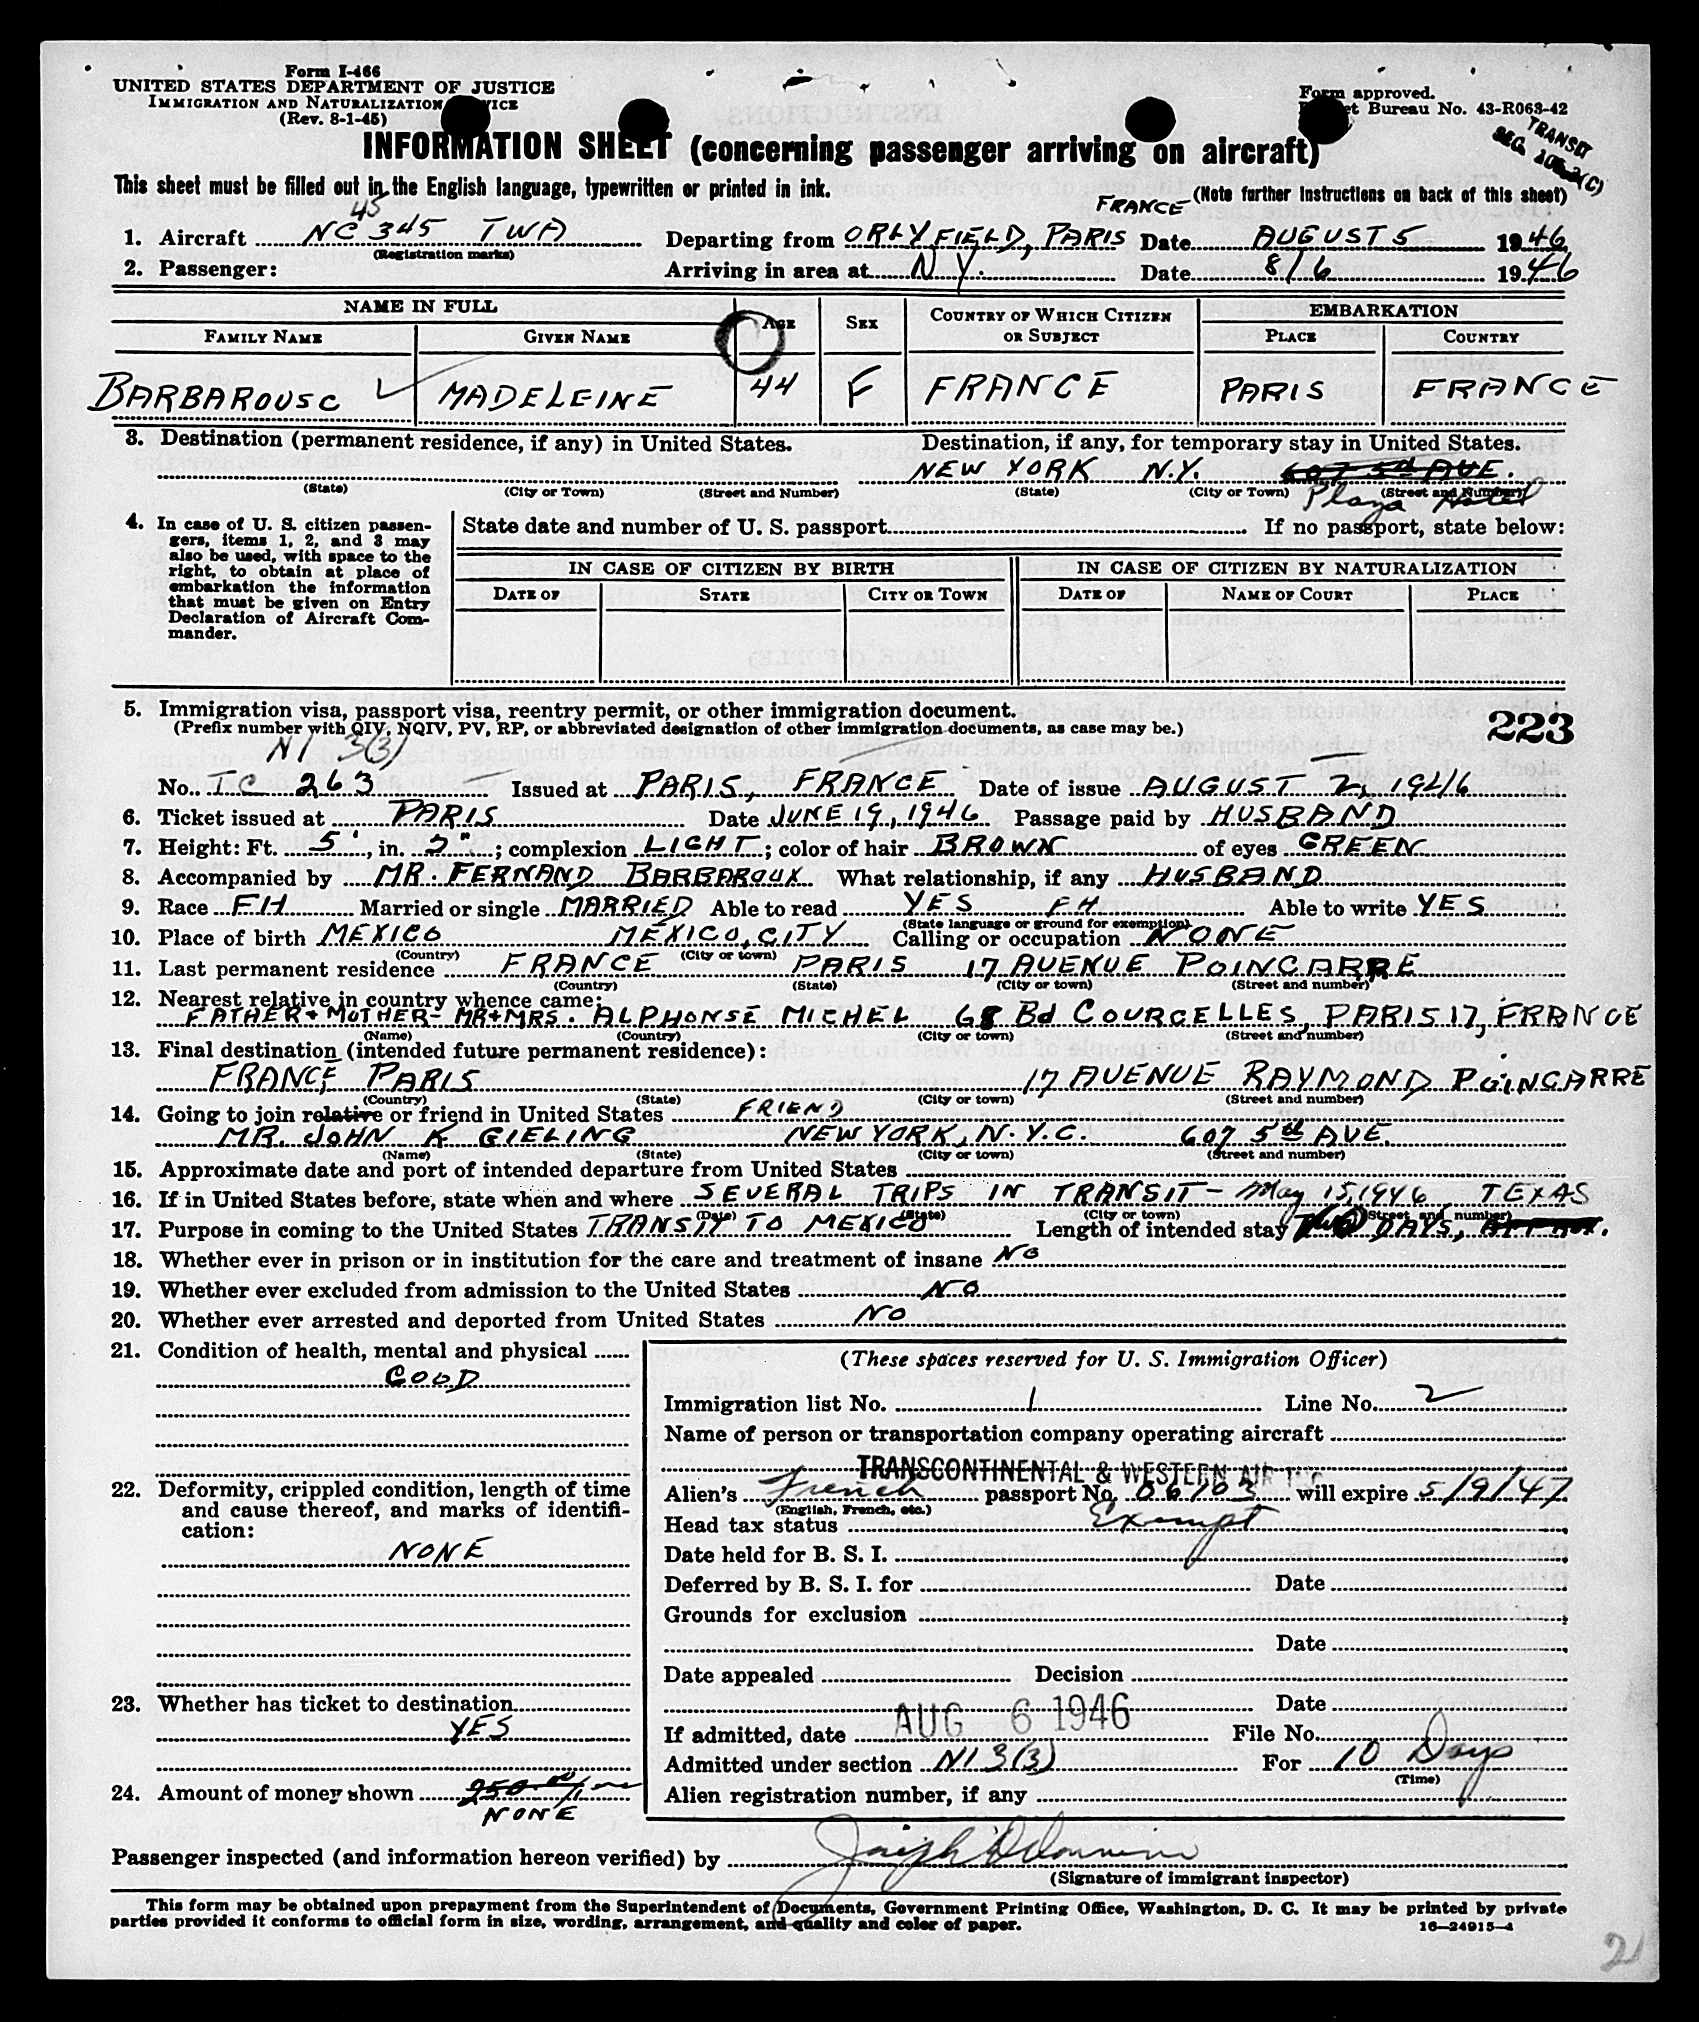 Form I-466
UNITED STATES DEPARTMENT OF JUSTICE
IMMIGRATION AND NATURALIZATION
(Rev. 8-1-45)
Form approved.
Bureau No. 43-R063-42
TRANSIT
INFORMATION SHEET (concerning passenger arriving on aircraft)
This sheet must be filled out in the English language, typewritten or printed in ink.
(Note further instructions on back of this sheet)
45 FRANCE
1. Aircraft NC 345 TWA Departing from ORLY FIELD, PARIS Date AUGUST 5 1946
(Registration marks)
2. Passenger: Arriving in area at N.Y. Date 8/6 1946
NAME IN FULL AGE SEX COUNTRY OF WHICH CITIZEN OR SUBJECT EMBARKATION
FAMILY NAME GIVEN NAME PLACE COUNTRY
MADELEINE 44 F FRANCE PARIS FRANCE
3. Destination (permanent residence, if any) in United States. Destination, if any, for temporary stay in United States.
NEW YORK N.Y. 607 5th AVE.
(State) (City or Town) (Street and Number) (State) (City or Town) (Street and Number)
Plaza Hotel
4. In case of U. S. citizen passengers, items 1, 2, and 3 may also be used, with space to the right, to obtain at place of embarkation the information that must be given on Entry Declaration of Aircraft Commander.
State date and number of U. S. passport If no passport, state below:
IN CASE OF CITIZEN BY BIRTH IN CASE OF CITIZEN BY NATURALIZATION
DATE OF STATE CITY OR TOWN DATE OF NAME OF COURT PLACE
5. Immigration visa, passport visa, reentry permit, or other immigration document.
(Prefix number with QIV, NQIV, PV, RP, or abbreviated designation of other immigration documents, as case may be.)
223
NI 3(3)
No. TC 263 Issued at PARIS, FRANCE Date of issue AUGUST 2, 1946
6. Ticket issued at PARIS Date JUNE 19, 1946 Passage paid by HUSBAND
7. Height: Ft. 5', in. 2"; complexion LIGHT; color of hair BROWN of eyes GREEN
8. Accompanied by MR. FERNAND BARBAROUX What relationship, if any HUSBAND
9. Race FH Married or single MARRIED Able to read YES FH Able to write YES
(State language or ground for exemption)
10. Place of birth MEXICO MEXICO, CITY Calling or occupation NONE
(Country) (City or town)
11. Last permanent residence FRANCE PARIS 17 AVENUE POINCARRE
(Country) (State) (City or town) (Street and number)
12. Nearest relative in country whence came:
FATHER + MOTHER - MR + MRS. ALPHONSE MICHEL 68 Bd COURCELLES, PARIS 17, FRANCE
(Name) (Country) (City or town) (Street and number)
13. Final destination (intended future permanent residence):
FRANCE PARIS 17 AVENUE RAYMOND POINCARRE
(Country) (State) (City or town) (Street and number)
14. Going to join relative or friend in United States FRIEND
MR. JOHN K. GIELING NEW YORK, N.Y.C. 607 5th AVE.
(Name) (State) (City or town) (Street and number)
15. Approximate date and port of intended departure from United States
16. If in United States before, state when and where SEVERAL TRIPS IN TRANSIT - May 15, 1946 TEXAS
(Date) (State) (City or town) (Street and number)
17. Purpose in coming to the United States TRANSIT TO MEXICO Length of intended stay DAYS,
18. Whether ever in prison or in institution for the care and treatment of insane NO
19. Whether ever excluded from admission to the United States NO
20. Whether ever arrested and deported from United States NO
21. Condition of health, mental and physical
GOOD
22. Deformity, crippled condition, length of time and cause thereof, and marks of identification:
NONE
23. Whether has ticket to destination
YES
24. Amount of money shown 250.00
NONE
(These spaces reserved for U. S. Immigration Officer)
Immigration list No. 1 Line No. 2
Name of person or transportation company operating aircraft
TRANSCONTINENTAL & WESTERN AIR INC
Alien's French passport No. 06103 will expire 5/9/47
(English, French, etc.)
Head tax status Exempt
Date held for B. S. I.
Deferred by B. S. I. for Date
Grounds for exclusion
Date
Date appealed Decision
Date
If admitted, date AUG 6 1946 File No.
Admitted under section NI 3(3) For 10 Days
(Time)
Alien registration number, if any
Passenger inspected (and information hereon verified) by
(Signature of immigrant inspector)
This form may be obtained upon prepayment from the Superintendent of Documents, Government Printing Office, Washington, D. C. It may be printed by private
parties provided it conforms to official form in size, wording, arrangement, and quality and color of paper. 16—24915-4
21